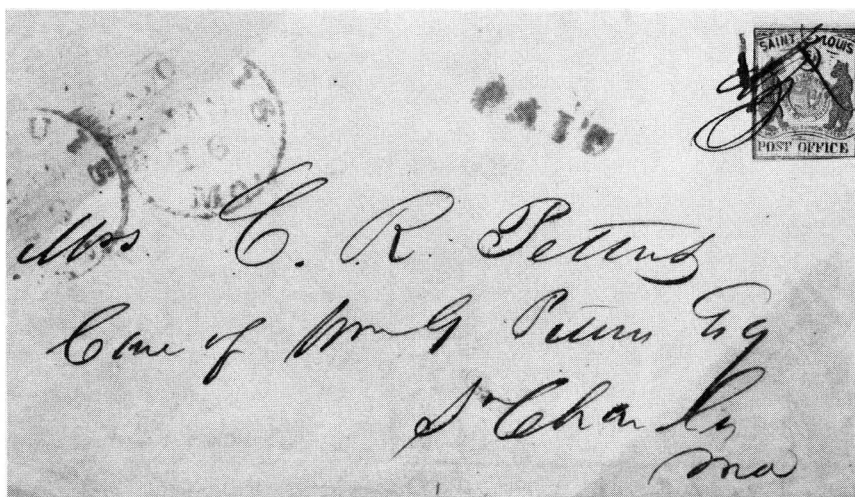 SAINT LOUIS
POST OFFICE
PAID
MO.
Mrs. C. R. Petters
Care of Wm G Peters Esq
St Charles
Mo